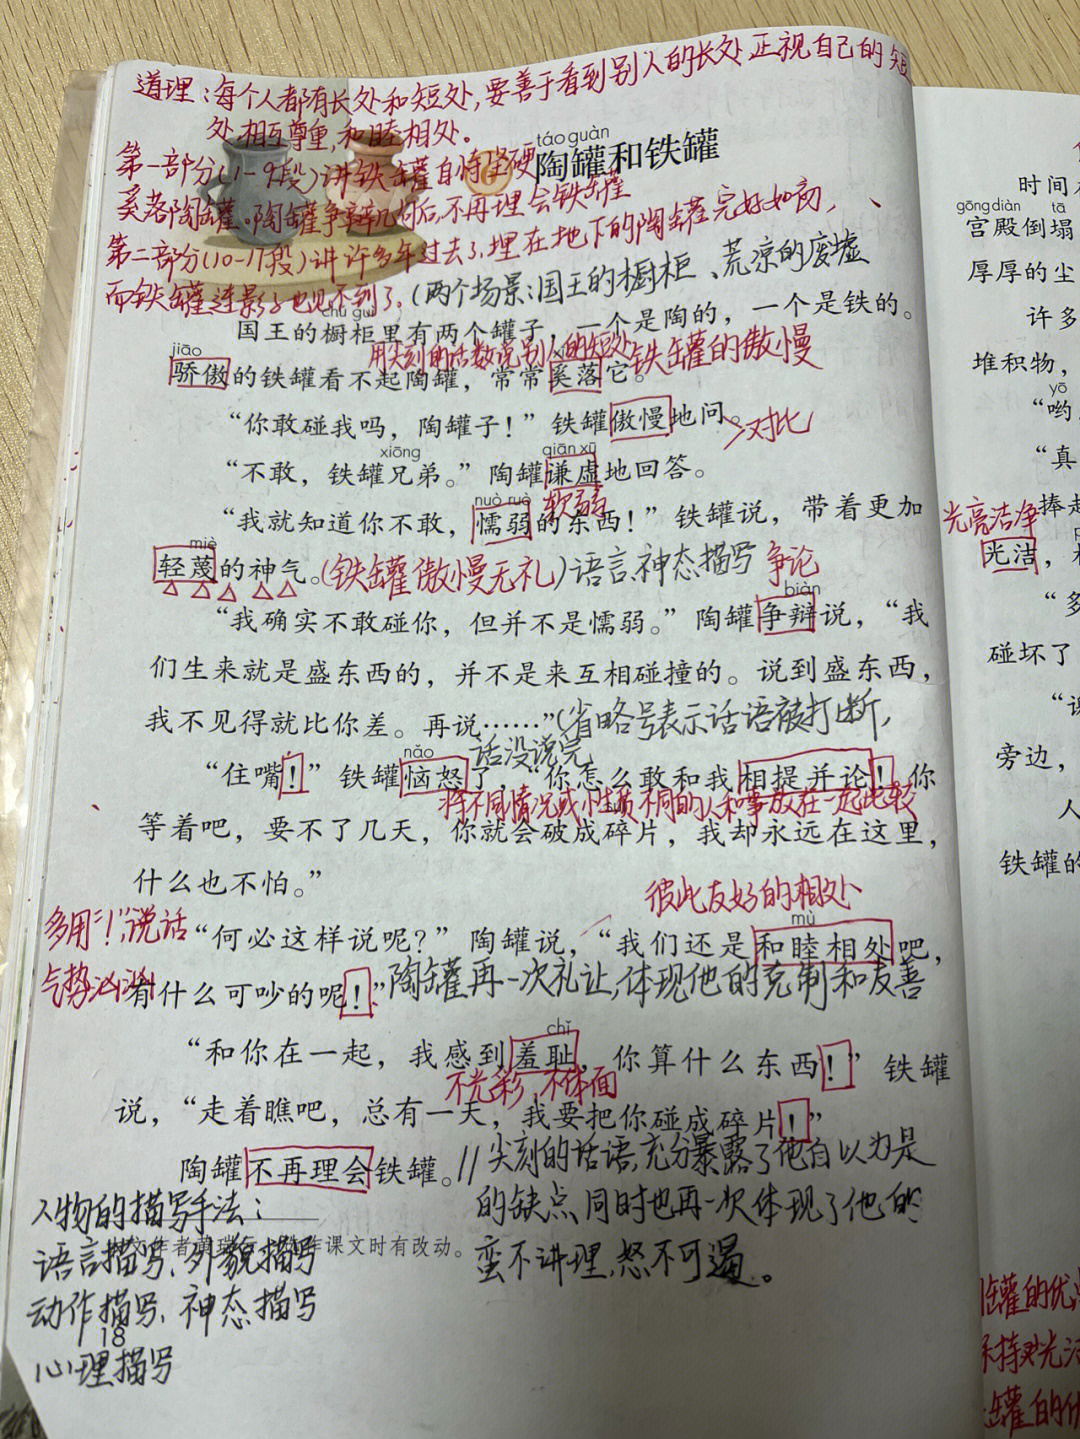 道理：每个人都有长处和短处，要善于看到别人的长处，正视自己的短
处，相互尊重，和睦相处。
táo guàn
陶罐和铁罐
第一部分(1-9段)讲铁罐自恃坚硬
奚落陶罐。陶罐争辩几句后，不再理会铁罐
第二部分(10-17段)讲许多年过去了，埋在地下的陶罐完好如初，
而铁罐连影子也见不到了。(两个场景：国王的橱柜、荒凉的废墟
chú guì
国王的橱柜里有两个罐子，一个是陶的，一个是铁的。
用尖刻的话数说别人的短处 铁罐的傲慢
jiāo
骄傲的铁罐看不起陶罐，常常奚落它。
“你敢碰我吗，陶罐子！”铁罐傲慢地问。
对比
xiōng qiān xū
“不敢，铁罐兄弟。”陶罐谦虚地回答。
nuò ruò 软弱
“我就知道你不敢，懦弱的东西！”铁罐说，带着更加
miè
轻蔑的神气。(铁罐傲慢无礼)语言、神态描写 争论
biàn
“我确实不敢碰你，但并不是懦弱。”陶罐争辩说，“我
们生来就是盛东西的，并不是来互相碰撞的。说到盛东西，
我不见得就比你差。再说……”(省略号表示话语被打断，
nǎo 话没说完
“住嘴！”铁罐恼怒了，“你怎么敢和我相提并论！你
将不同情况或性质不同的人和事放在一起比较
等着吧，要不了几天，你就会破成碎片，我却永远在这里，
什么也不怕。”
彼此友好的相处
mù
多用“！”，说话
“何必这样说呢？”陶罐说，“我们还是和睦相处吧，
气势汹汹
有什么可吵的呢！”陶罐再一次礼让，体现他的克制和友善
chǐ
“和你在一起，我感到羞耻，你算什么东西！”铁罐
不光彩，不体面
说，“走着瞧吧，总有一天，我要把你碰成碎片！”
陶罐不再理会铁罐。//尖刻的话语，充分暴露了他自以为是
的缺点，同时也再一次体现了他的
蛮不讲理，怒不可遏。
人物的描写手法：
语言描写、外貌描写
课文时有改动。
动作描写、神态描写
18
心理描写
时间
gōng diàn tā
宫殿倒塌
厚厚的尘
许多
堆积物，
yō
“哟
“真
捧起
光亮洁净
光洁，
“多
碰坏了
旁边，
人
铁罐的
罐的优
罐的优